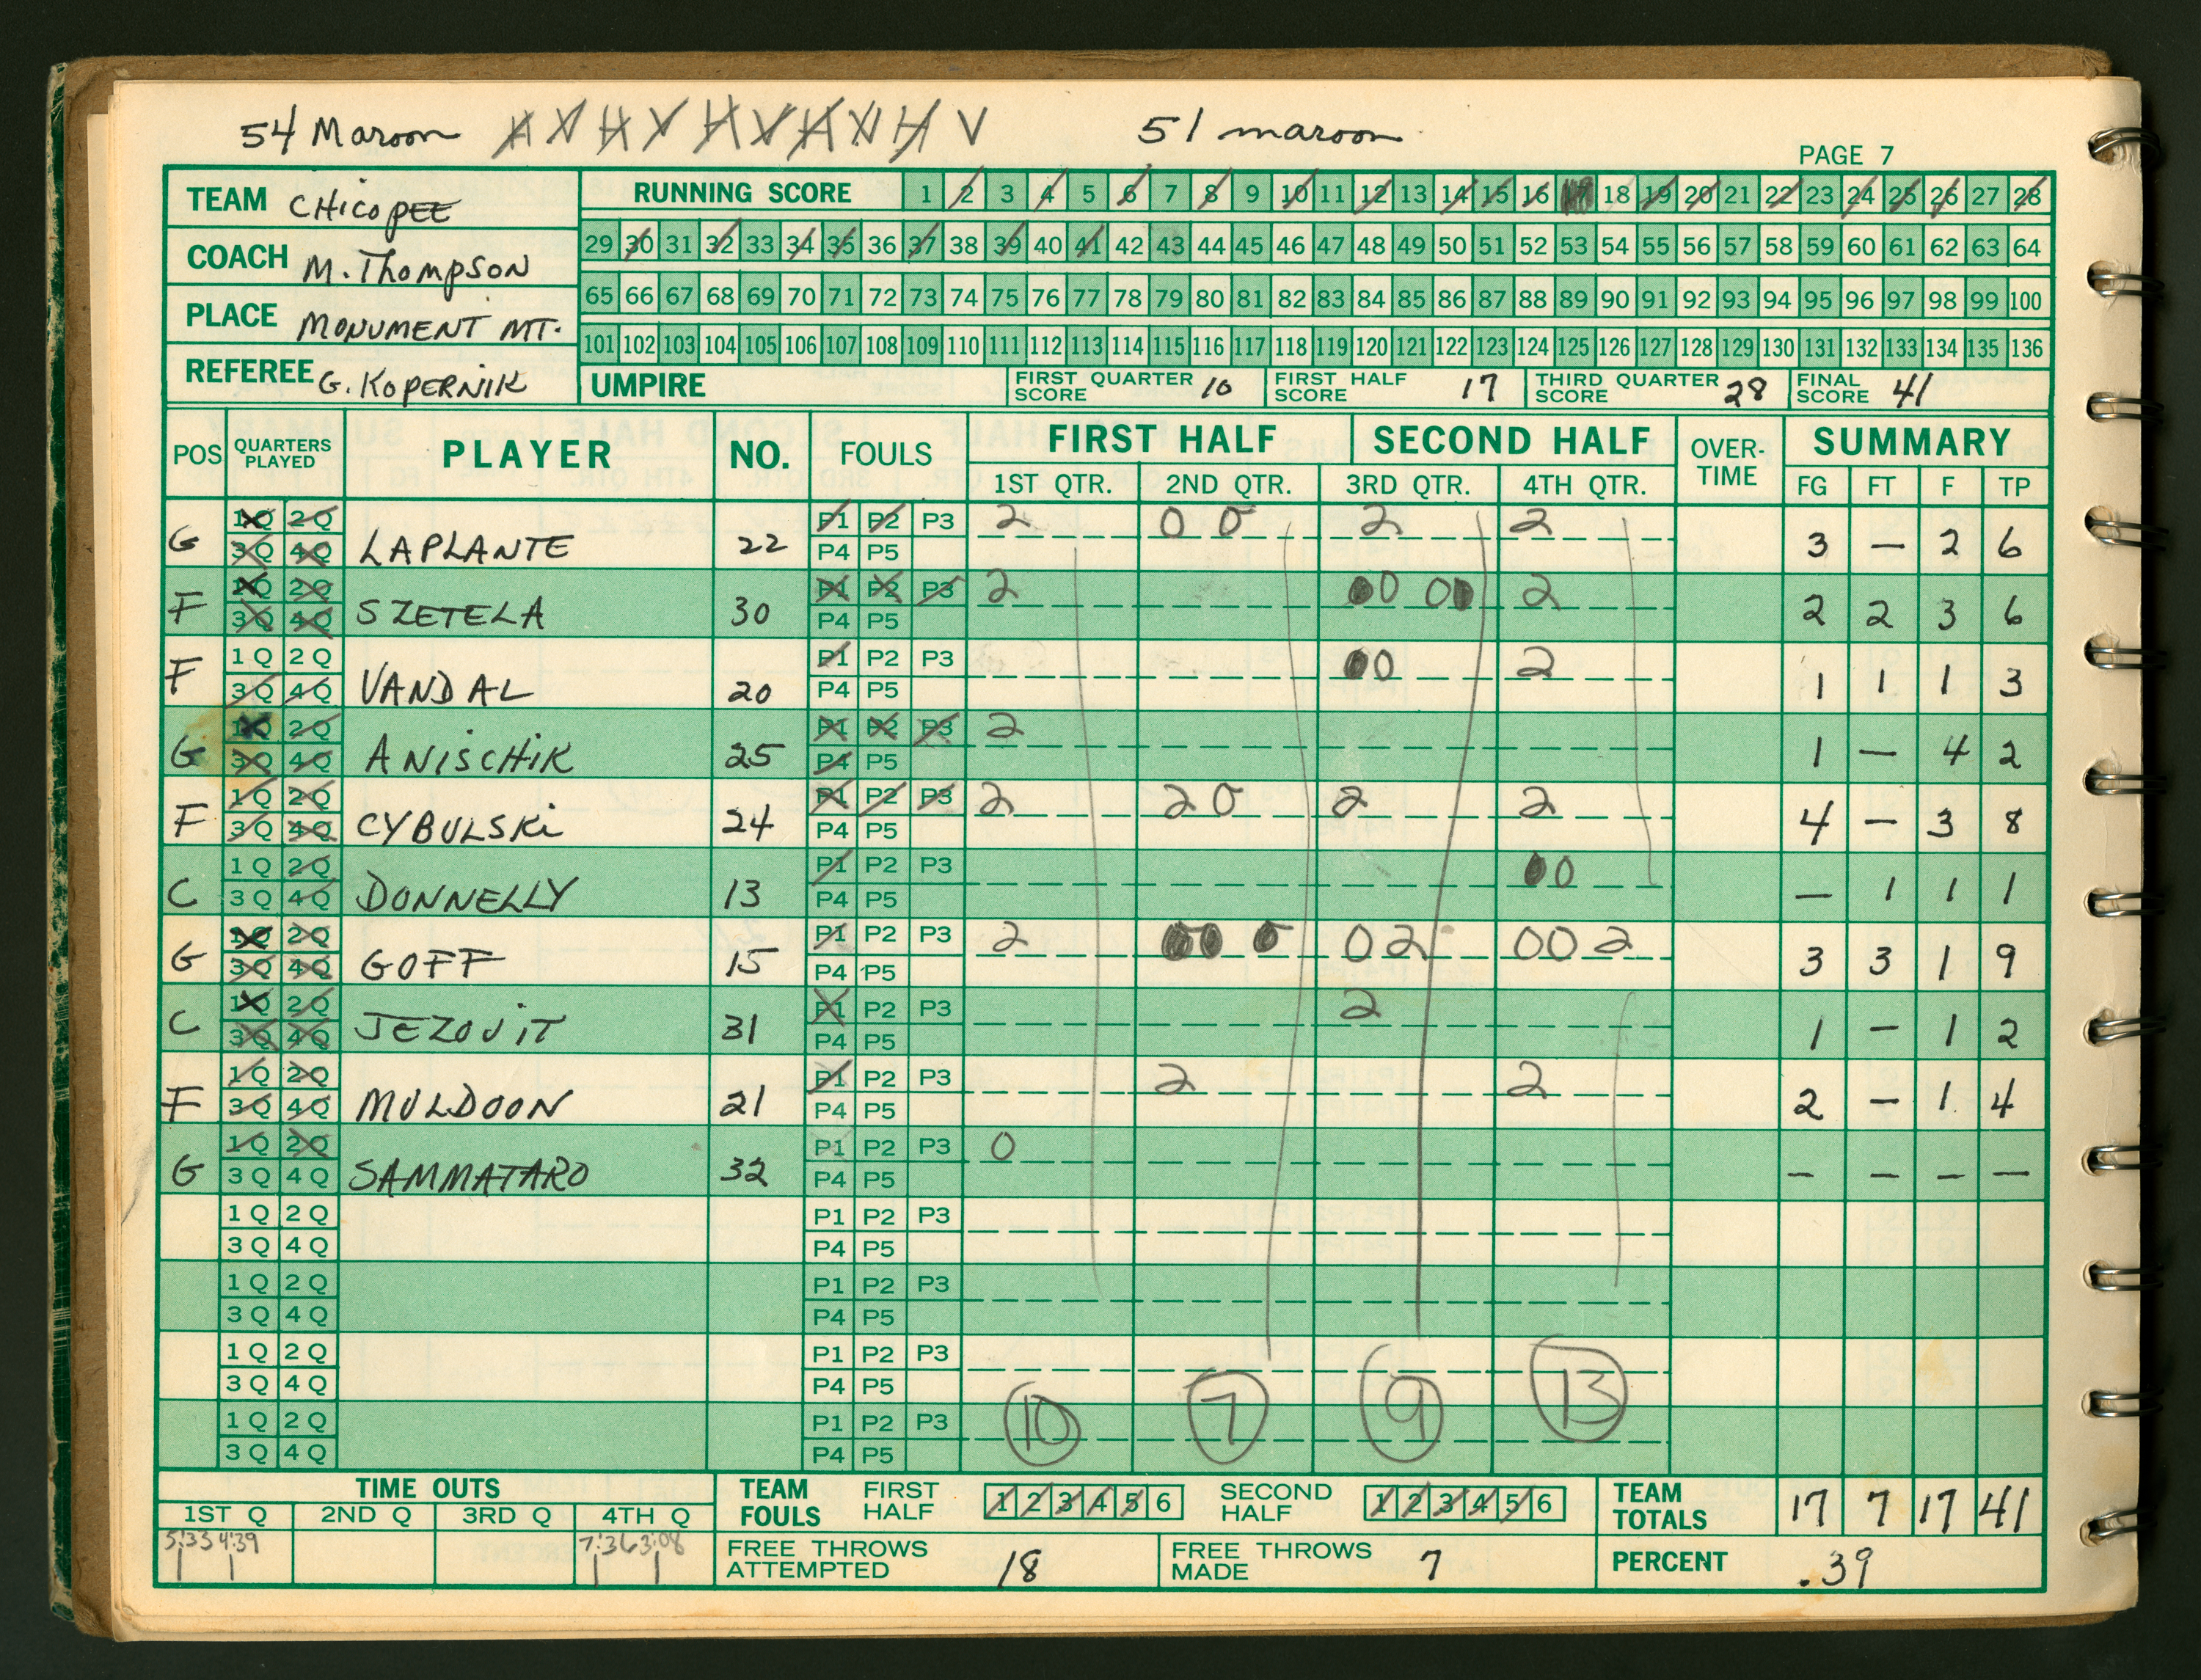 54 Maroon A V H V H V H V H V 51 maroon
PAGE 7
TEAM CHicoPEE
COACH M. Thompson
PLACE MONUMENT MT.
REFEREE G. KOPERNIK
RUNNING SCORE 1 2 3 4 5 6 7 8 9 10 11 12 13 14 15 16 17 18 19 20 21 22 23 24 25 26 27 28
29 30 31 32 33 34 35 36 37 38 39 40 41 42 43 44 45 46 47 48 49 50 51 52 53 54 55 56 57 58 59 60 61 62 63 64
65 66 67 68 69 70 71 72 73 74 75 76 77 78 79 80 81 82 83 84 85 86 87 88 89 90 91 92 93 94 95 96 97 98 99 100
101 102 103 104 105 106 107 108 109 110 111 112 113 114 115 116 117 118 119 120 121 122 123 124 125 126 127 128 129 130 131 132 133 134 135 136
UMPIRE FIRST QUARTER SCORE 10 FIRST HALF SCORE 17 THIRD QUARTER SCORE 28 FINAL SCORE 41
POS QUARTERS PLAYED PLAYER NO. FOULS FIRST HALF SECOND HALF OVER-TIME SUMMARY
1ST QTR. 2ND QTR. 3RD QTR. 4TH QTR. FG FT F TP
1Q 2Q P1 P2 P3 2 0 0 2 2
G 3Q 4Q LAPLANTE 22 P4 P5 3 — 2 6
1Q 2Q P1 P2 P3 2 00 00 2
F 3Q 4Q SZETELA 30 P4 P5 2 2 3 6
1Q 2Q P1 P2 P3 00 2
F 3Q 4Q VANDAL 20 P4 P5 1 1 1 3
1Q 2Q P1 P2 P3 2
G 3Q 4Q ANISCHIK 25 P4 P5 1 — 4 2
1Q 2Q P1 P2 P3 2 2 0 2 2
F 3Q 4Q CYBULSKi 24 P4 P5 4 — 3 8
1Q 2Q P1 P2 P3 00
C 3Q 4Q DONNELLY 13 P4 P5 — 1 1 1
1Q 2Q P1 P2 P3 2 00 0 0 2 00 2
G 3Q 4Q GOFF 15 P4 P5 3 3 1 9
1Q 2Q P1 P2 P3 2
C 3Q 4Q JEZOUiT 31 P4 P5 1 — 1 2
1Q 2Q P1 P2 P3 2 2
F 3Q 4Q MULDOON 21 P4 P5 2 — 1 4
1Q 2Q P1 P2 P3 0
G 3Q 4Q SAMMATARO 32 P4 P5 — — — —
1Q 2Q P1 P2 P3
3Q 4Q P4 P5
1Q 2Q P1 P2 P3
3Q 4Q P4 P5
1Q 2Q P1 P2 P3
3Q 4Q P4 P5
1Q 2Q P1 P2 P3 10 7 9 13
3Q 4Q P4 P5
TIME OUTS
1ST Q 2ND Q 3RD Q 4TH Q
5:33 4:39 7:36 3:08
TEAM FOULS FIRST HALF 1 2 3 4 5 6 SECOND HALF 1 2 3 4 5 6
FREE THROWS ATTEMPTED 18 FREE THROWS MADE 7
TEAM TOTALS 17 7 17 41
PERCENT .39